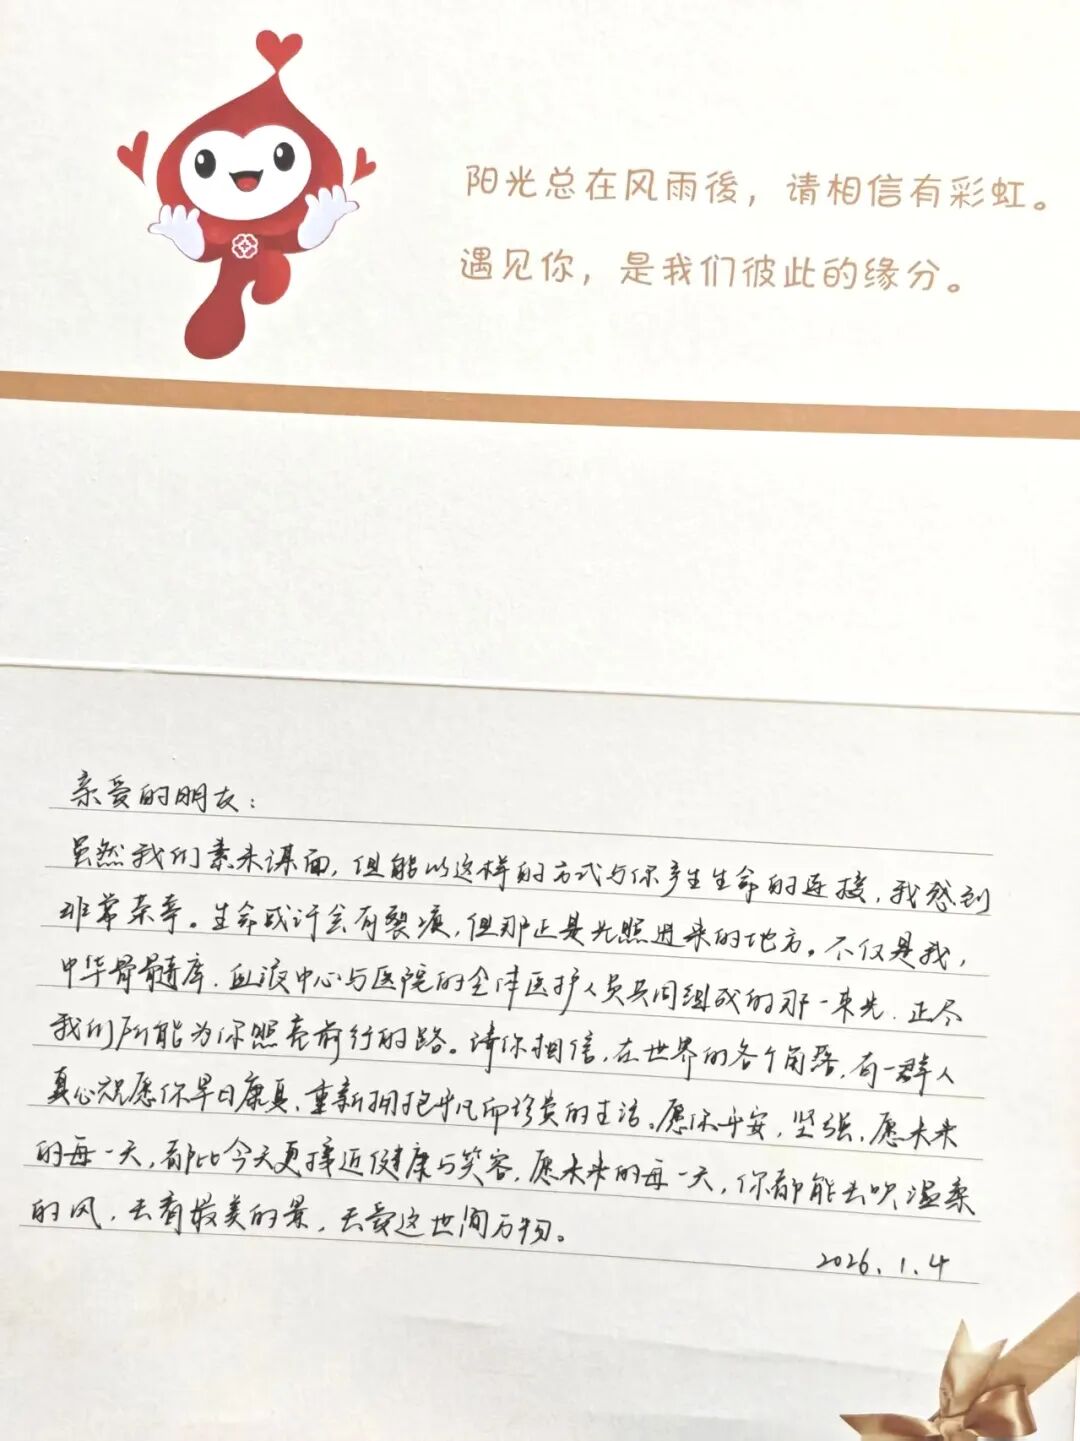 阳光总在风雨後，请相信有彩虹。
遇见你，是我们彼此的缘分。
亲爱的朋友：
虽然我们素未谋面，但能以这样的方式与你产生生命的连接，我感到
非常荣幸。生命或许会有裂痕，但那正是光照进来的地方。不仅是我，
中华骨髓库、血液中心与医院的全体医护人员共同组成的那一束光，正尽
我们所能为你照亮前行的路。请你相信，在世界的各个角落，有一群人
真心祝愿你早日康复，重新拥抱平凡而珍贵的生活。愿你平安，坚强，愿未来
的每一天，都比今天更接近健康与笑容，愿未来的每一天，你都能去吹温柔
的风，去看最美的景，去爱这世间万物。
2026.1.4